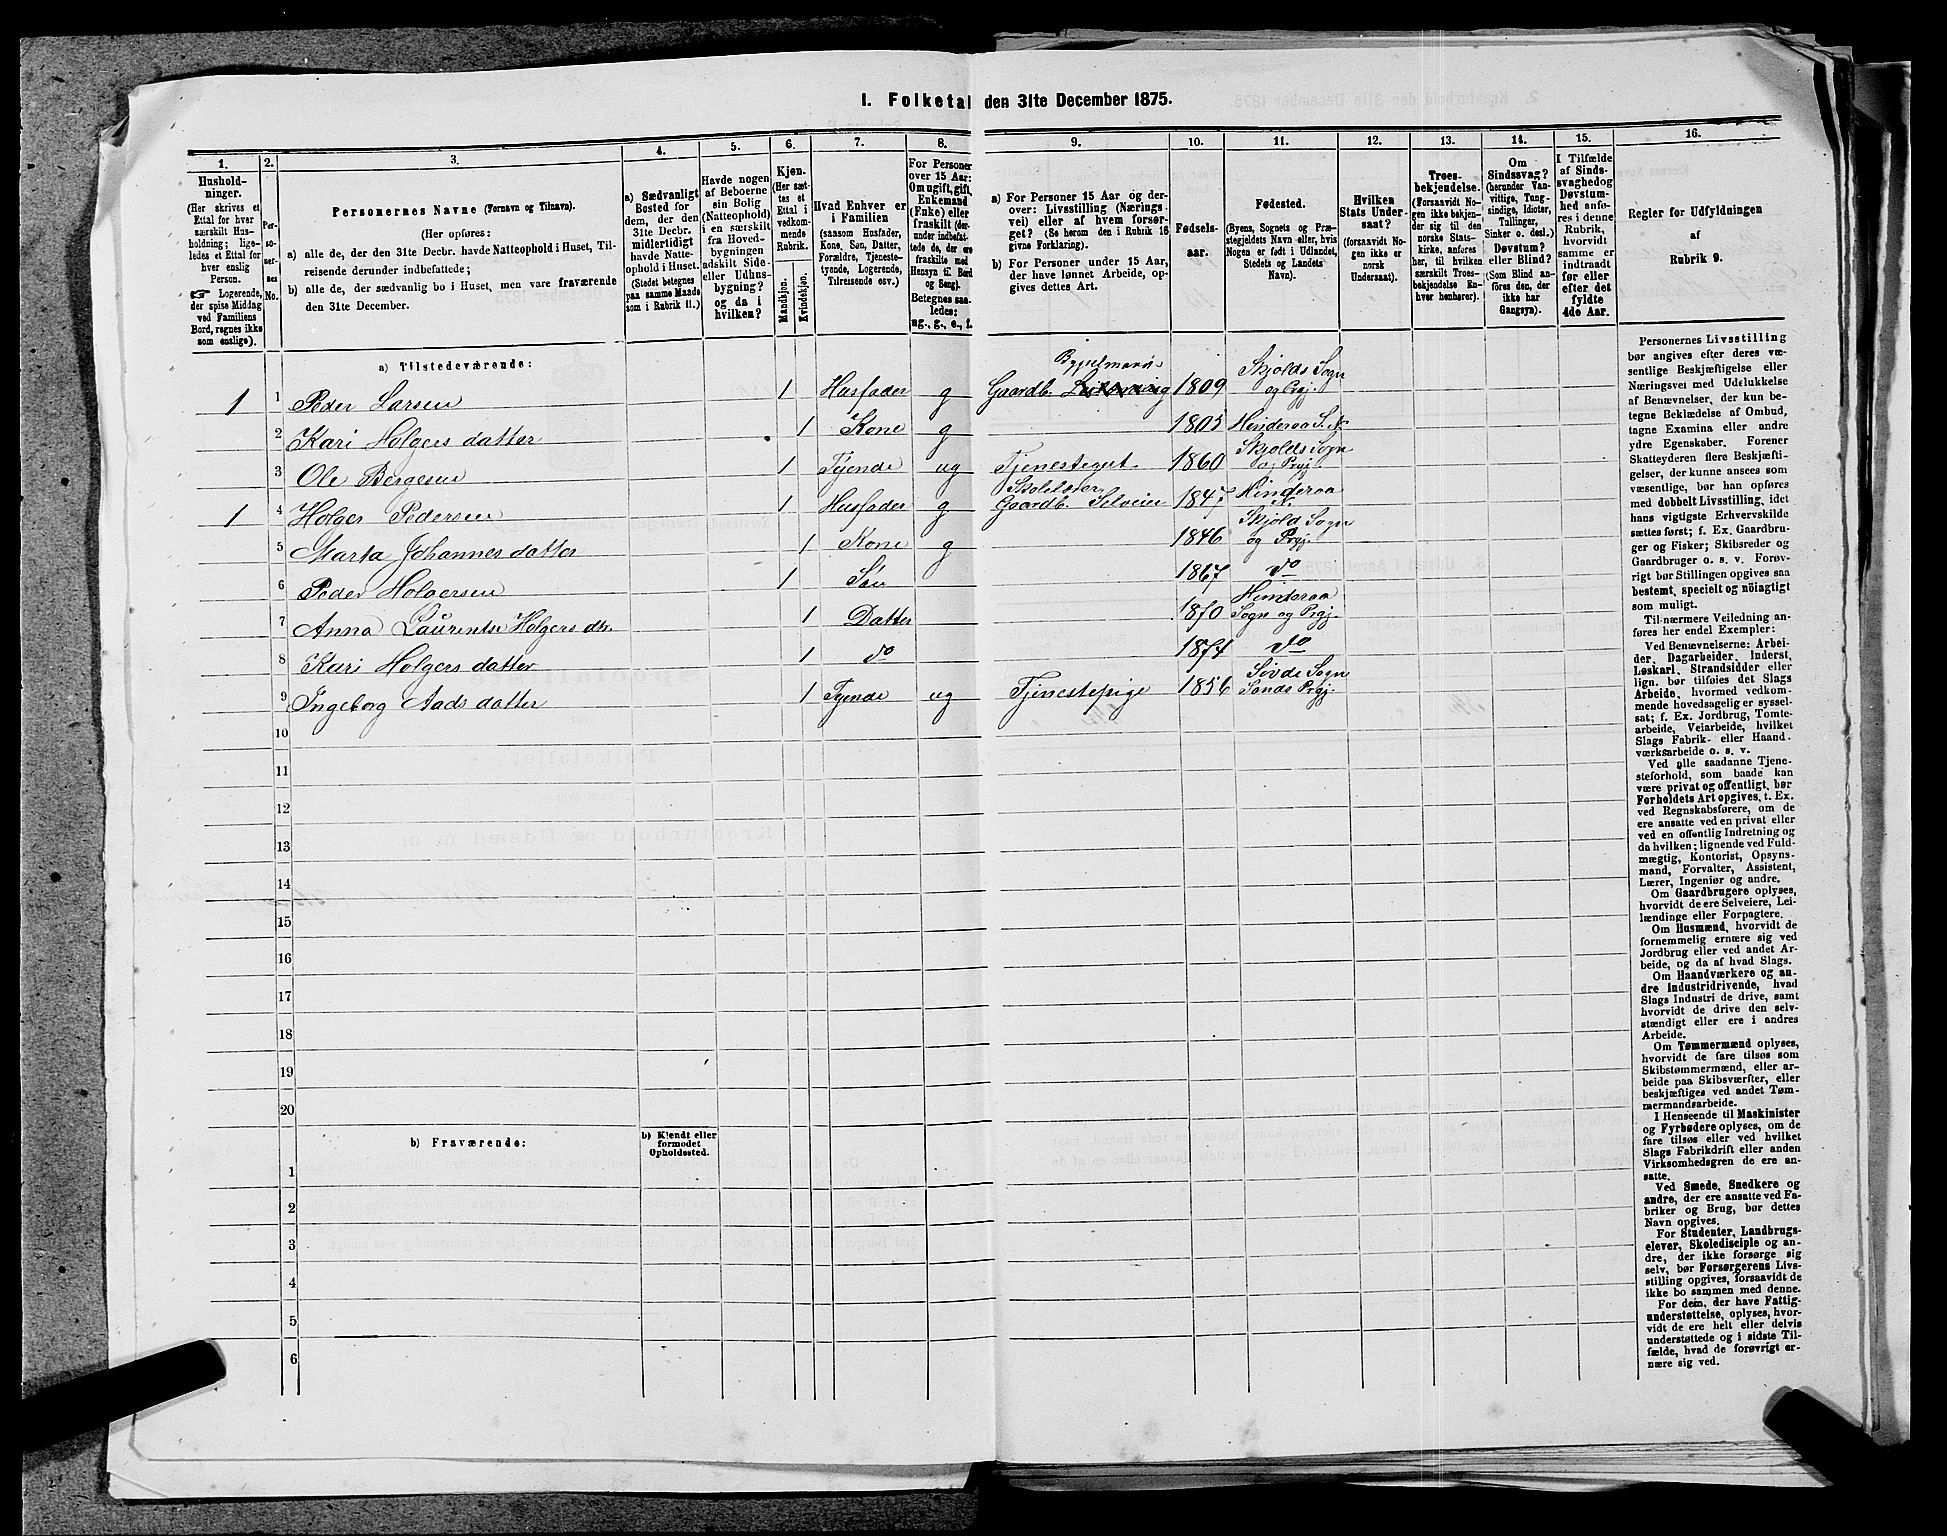 I. Folketal den 31te December 1875.
1. 2. 3. 4. 5. 6. 7. 8. 9. 10. 11. 12. 13. 14. 15. 16.
Hushold-
ninger.
(Her skrives et
Ettal for hver
særskilt Hus-
holdning; lige-
ledes et Ettal for
hver enslig
Person.
☞ Logerende,
der spise Middag
ved Familiens
Bord, regnes ikke
som enslige).
Per-
so-
ner-
nes
No.
Personernes Navne (Fornavn og Tilnavn).
(Her opføres:
a) alle de, der den 31te Decbr. havde Natteophold i Huset, Til-
reisende derunder indbefattede;
b) alle de, der sædvanlig bo i Huset, men vare fraværende
den 31te December.
a) Sædvanligt
Bosted for
dem, der den
31te Decbr.
midlertidigt
havde Natte-
ophold i Huset.
(Stedet betegnes
paa samme Maade
som i Rubrik 11.)
Havde nogen
af Beboerne
sin Bolig
(Natteophold)
i en særskilt
fra Hoved-
bygningen
adskilt Side-
eller Udhus-
bygning?
og da i
hvilken?
Kjøn.
(Her sæt-
tes et
Ettal i
vedkom-
mende
Rubrik.
Mandkjøn.
Kvindekjøn.
Hvad Enhver er
i Familien
(saasom Husfader,
Kone, Søn, Datter,
Forældre, Tjeneste-
tyende, Logerende,
Tilreisende osv.)
For Personer
over 15 Aar:
Om ugift, gift,
Enkemand
(Enke) eller
fraskilt (der-
under indbefat-
tede de, der ere
fraskilte med
Hensyn til Bord
og Seng).
Betegnes saa-
ledes:
ug., g., e., f.
a) For Personer 15 Aar og der-
over: Livsstilling (Nærings-
vei) eller af hvem forsør-
get? (Se herom den i Rubrik 16
givne Forklaring).
b) For Personer under 15 Aar,
der have lønnet Arbeide, op-
gives dettes Art.
Fødsels-
aar.
Fødested.
(Byens, Sognets og Præ-
stegjeldets Navn eller, hvis
Nogen er født i Udlandet,
Stedets og Landets
Navn).
Hvilken
Stats Under-
saat?
(forsaavidt No-
gen ikke er
norsk
Undersaat).
Troes-
bekjendelse.
(Forsaavidt No-
gen ikke bekjen-
der sig til den
norske Stats-
kirke, anføres
her, til hvilken
særskilt Troes-
bekjendelse En-
hver henhører).
Om
Sindssvag?
(herunder Van-
vittige, Tung-
sindige, Idioter,
Tullinger,
Sinker o. desl.)
Døvstum?
eller Blind?
(Som Blind an-
føres den, der
ikke har
Gangsyn).
I Tilfælde
af Sinds-
svaghed og
Døvstum-
hed anfø-
res i denne
Rubrik,
hvorvidt
samme er
indtraadt
før eller
efter det
fyldte
4de Aar.
Regler for Udfyldningen
af
Rubrik 9.
a) Tilstedeværende:
1 1 Peder Larsen 1 Husfader g Gaardb. 1809 Skjolds Sogn og Prgj.
2 Kari Holgersdatter 1 Kone g 1805 Hinderaa S.
3 Ole Børgesen 1 Tyende ug Tjenestegut 1860 Skjolds Sogn og Prgj.
1 4 Holger Pedersen 1 Husfader g Skolelærer Gaardb. Selveier 1847 Hinderaa
5 Marta Johannesdatter 1 Kone g 1846 Skjold Sogn og Prgj.
6 Peder Holgersen 1 Søn 1867 do
7 Anna Laurentse Holgersdtr. 1 Datter 1870 Hinderaa Sogn og Prgj.
8 Kari Holgersdatter 1 do 1874 do
9 Ingeborg Aadsdatter 1 Tyende ug Tjenestepige 1856 Søvde Sogn Sands Prgj.
10
11
12
13
14
15
16
17
18
19
20
b) Fraværende:
b) Kjendt eller
formodet
Opholdssted.
1
2
3
4
5
6
Personernes Livsstilling
bør angives efter deres væ-
sentlige Beskjæftigelse eller
Næringsvei med Udelukkelse
af Benævnelser, der kun be-
tegne Beklædelse af Ombud,
tagne Examina eller andre
ydre Egenskaber. Forener
Skatteyderen flere Beskjæfti-
gelser, der kunne ansees som
væsentlige, bør han opføres
med dobbelt Livsstilling, idet
hans vigtigste Erhvervskilde
sættes først; f. Ex. Gaardbru-
ger og Fisker; Skibsreder og
Gaardbruger o. s. v. Forøv-
rigt bør Stillingen opgives saa
bestemt, specielt og nöiagtigt
som muligt.
Til nærmere Veiledning an-
føres her endel Exempler:
Ved Benævnelserne: Arbei-
der, Dagarbeider, Inderst,
Løskarl, Strandsidder eller
lign. bør tilføies det Slags
Arbeide, hvormed vedkom-
mende hovedsagelig er syssel-
sat; f. Ex. Jordbrug, Tomte-
arbeide, Veiarbeide, hvilket
Slags Fabrik- eller Haand-
værksarbeide o. s. v.
Ved alle saadanne Tjene-
steforhold, som baade kan
være privat og offentligt, bør
Forholdets Art opgives, t. Ex.
ved Regnskabsførere, om de
ere ansatte ved en privat eller
ved en offentlig Indretning og
da hvilken; lignende ved Fuld-
mægtig, Kontorist, Opsyns-
mand, Forvalter, Assistent,
Lærer, Ingeniør og andre.
Om Gaardbrugere oplyses,
hvorvidt de ere Selveiere, Lei-
lændinge eller Forpagtere.
Om Husmænd, hvorvidt de
fornemmelig ernære sig ved
Jordbrug eller ved andet Ar-
beide, og da af hvad Slags.
Om Haandværkere og an-
dre Industridrivende, hvad
Slags Industri de drive, samt
hvorvidt de drive den selv-
stændigt eller ere i andres
Arbeide.
Om Tømmermænd oplyses,
hvorvidt de fare tilsøs som
Skibstømmermænd, eller ar-
beide paa Skibsværfter, eller
beskjæftiges ved andet Tøm-
mermandsarbeide.
I Henseende til Maskinister
og Fyrbødere oplyses, om de
fare tilsøs eller ved hvilket
Slags Fabrikdrift eller anden
Virksomhedsgren de ere an-
satte.
Ved Smede, Snedkere og
andre, der ere ansatte ved Fa-
briker og Brug, bør dettes
Navn opgives.
For Studenter, Landbrugs-
elever, Skoledisciple og an-
dre, der ikke forsørge sig
selv, bør Forsørgerens Livs-
stilling opgives, forsaavidt de
ikke bo sammen med denne.
For dem, der have Fattig-
understøttelse, oplyses, hvor-
vidt de ere helt eller delvis
understøttede og i sidste Til-
fælde, hvad de forøvrigt er-
nære sig ved.